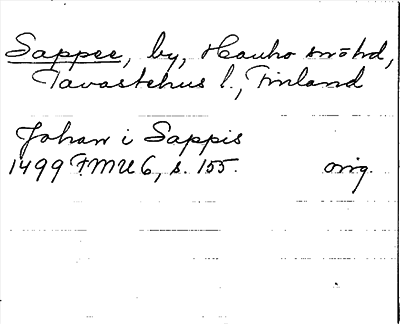 Sappee, by, Hauho sn o hd,
Tavastehus l., Finland
Johan i Sappis
1499 FMU 6, s. 155. orig.